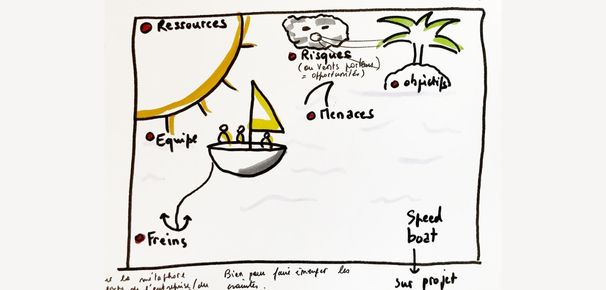 Ressources
Risques
(ou vents porteurs
= opportunités)
objectifs
Menaces
Equipe
Freins
Speed
boat
sur projet
la métaphore
de l'entreprise/du
Bien pour faire émerger les
craintes.